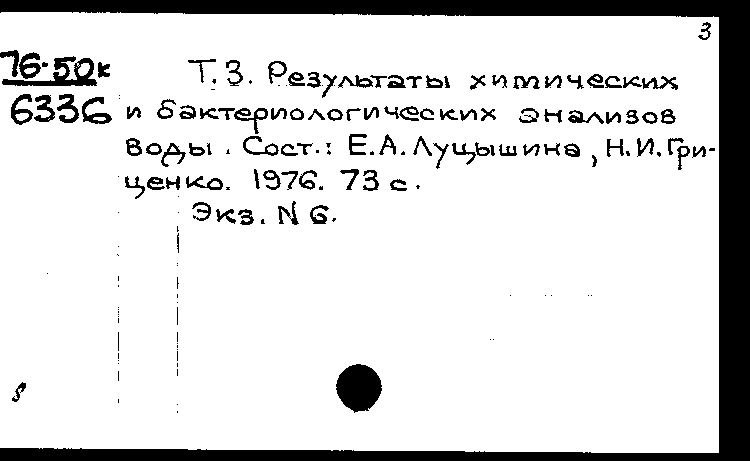 3
76-50к
6336
Т.3. Результаты химических
и бактериологических анализов
воды. Сост.: Е.А. Луцышина, Н.И. Гри-
ценко. 1976. 73 с.
Экз. N 6.